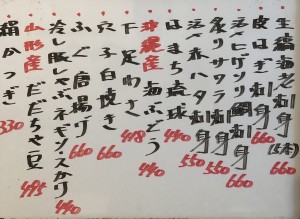 生縞海老刺身(5本)
皮はぎ刺身 660
活〆ヒゲソリ鯛刺身 660
炙りサワラ刺身 550
活〆赤ハタ刺身 550
はまち琉球 440
沖縄産 海ぶどう 440
下足わさ 418
穴子白焼き 660
ふぐ唐揚げ 660
冷し豚しゃぶネギソースかけ 440
山形産 だだちゃ豆 495
絹かつぎ 330